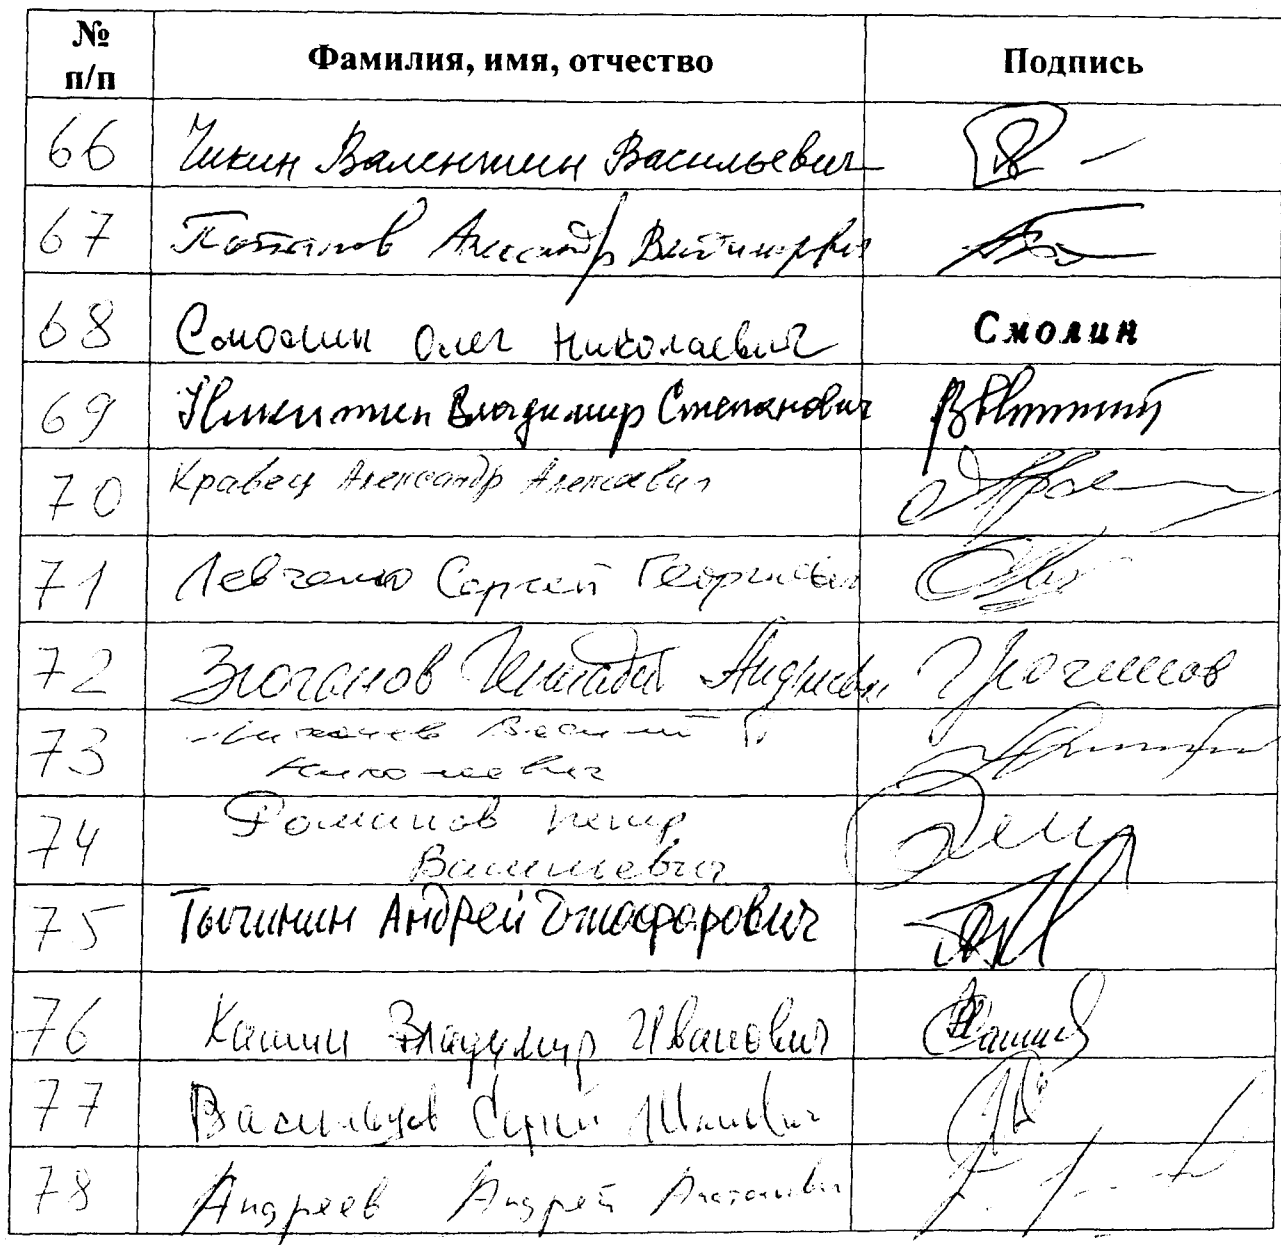 № п/п Фамилия, имя, отчество Подпись
66 Чикин Валентин Васильевич
67 Потапов Александр Владимирович
68 Смолин Олег Николаевич Смолин
69 Никитин Владимир Степанович
70 Кравец Александр Алексеевич
71 Левченко Сергей Георгиевич
72 Зюганов Геннадий Андреевич
73 Василий
Николаевич
74 Романов Петр
Васильевич
75 Тычинин Андрей Джафарович
76 Кашин Владимир Иванович Кашин
77 Васильцов Сергей Иванович
78 Андреев Андрей Анатольевич